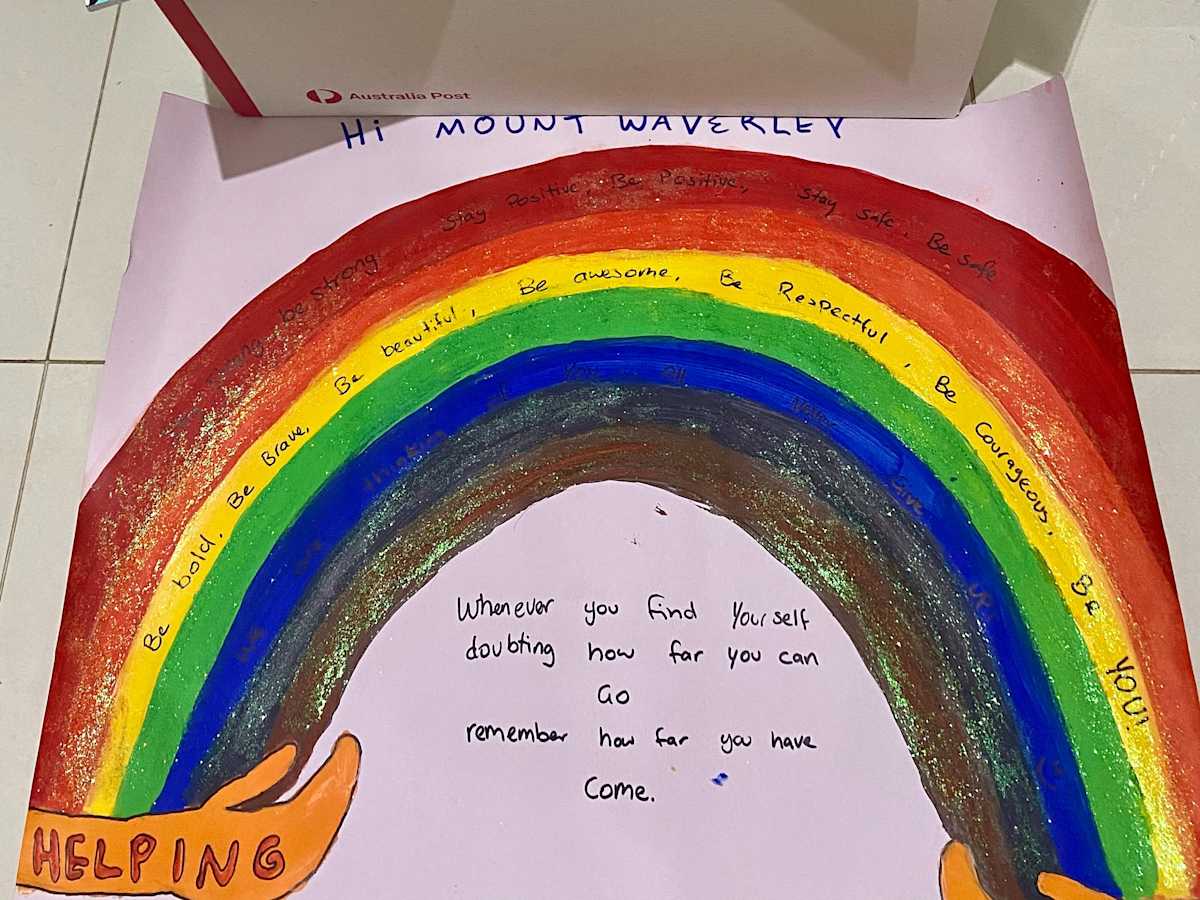 Australia Post
Hi MOUNT WAVERLEY
strong be strong Stay Positive, Be Positive, Stay safe, Be safe
Be bold, Be Brave, Be beautiful, Be awesome, Be Respectful, Be Courageous, Be YOU!
we are thinking of you all Never Give up
Whenever you find Yourself
doubting how far you can
Go
remember how far you have
Come.
HELPING